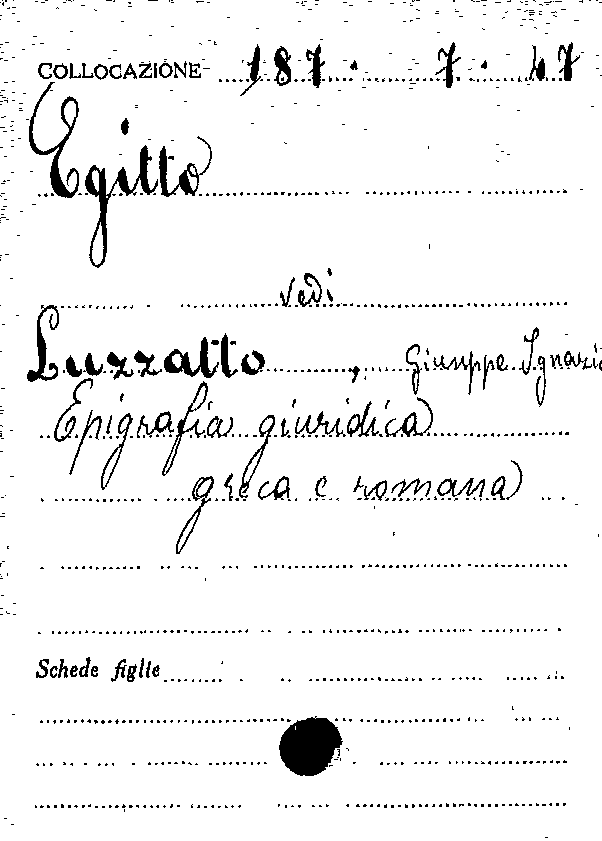 COLLOCAZIONE 187. 7. 47
Egitto
vedi
Luzzatto, Giuseppe Ignazio
Epigrafia giuridica
greca e romana
Schede figlie